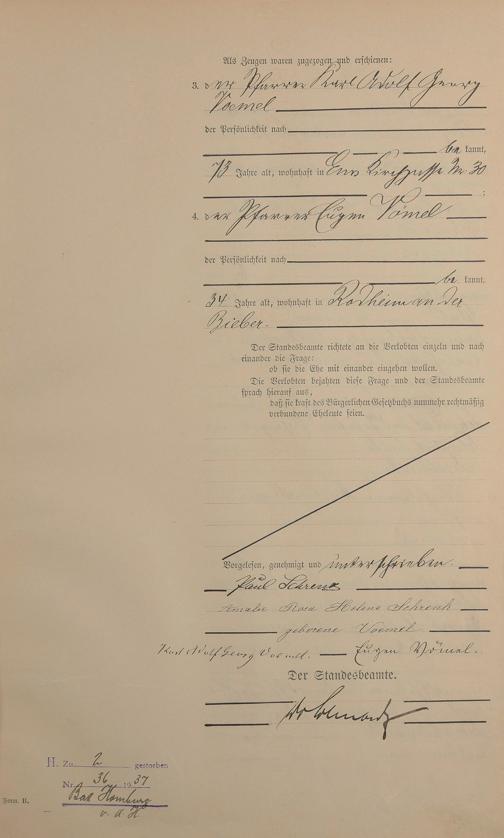 Als Zeugen waren zugezogen und erschienen:
3. der Pfarrer Karl Adolf Georg
Voemel
der Persönlichkeit nach
be kannt,
73 Jahre alt, wohnhaft in Ems Kirchgasse Nr. 30
;
4. der Pfarrer Eugen Vömel
der Persönlichkeit nach
be kannt,
34 Jahre alt, wohnhaft in Rodheim an der
Bieber.
Der Standesbeamte richtete an die Verlobten einzeln und nach
einander die Frage:
ob sie die Ehe mit einander eingehen wollen.
Die Verlobten bejahten diese Frage und der Standesbeamte
sprach hierauf aus,
daß sie kraft des Bürgerlichen Gesetzbuchs nunmehr rechtmäßig
verbundene Eheleute seien.
Vorgelesen, genehmigt und unterschrieben.
Paul Schrenk
Amalie Rosa Helene Schrenk
geborene Voemel
Karl Adolf Georg Voemel. Eugen Vömel.
Der Standesbeamte.
H. Zu. 2 gestorben
Nr. 36 1937
Bad Homburg
v. d. H
Form. B.